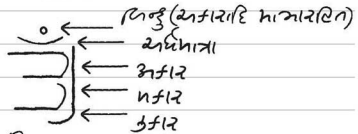 બિન્દુ (અકારાદિ માત્રારહિત)
અર્ધમાત્રા
અકાર
મકાર
ઉકાર